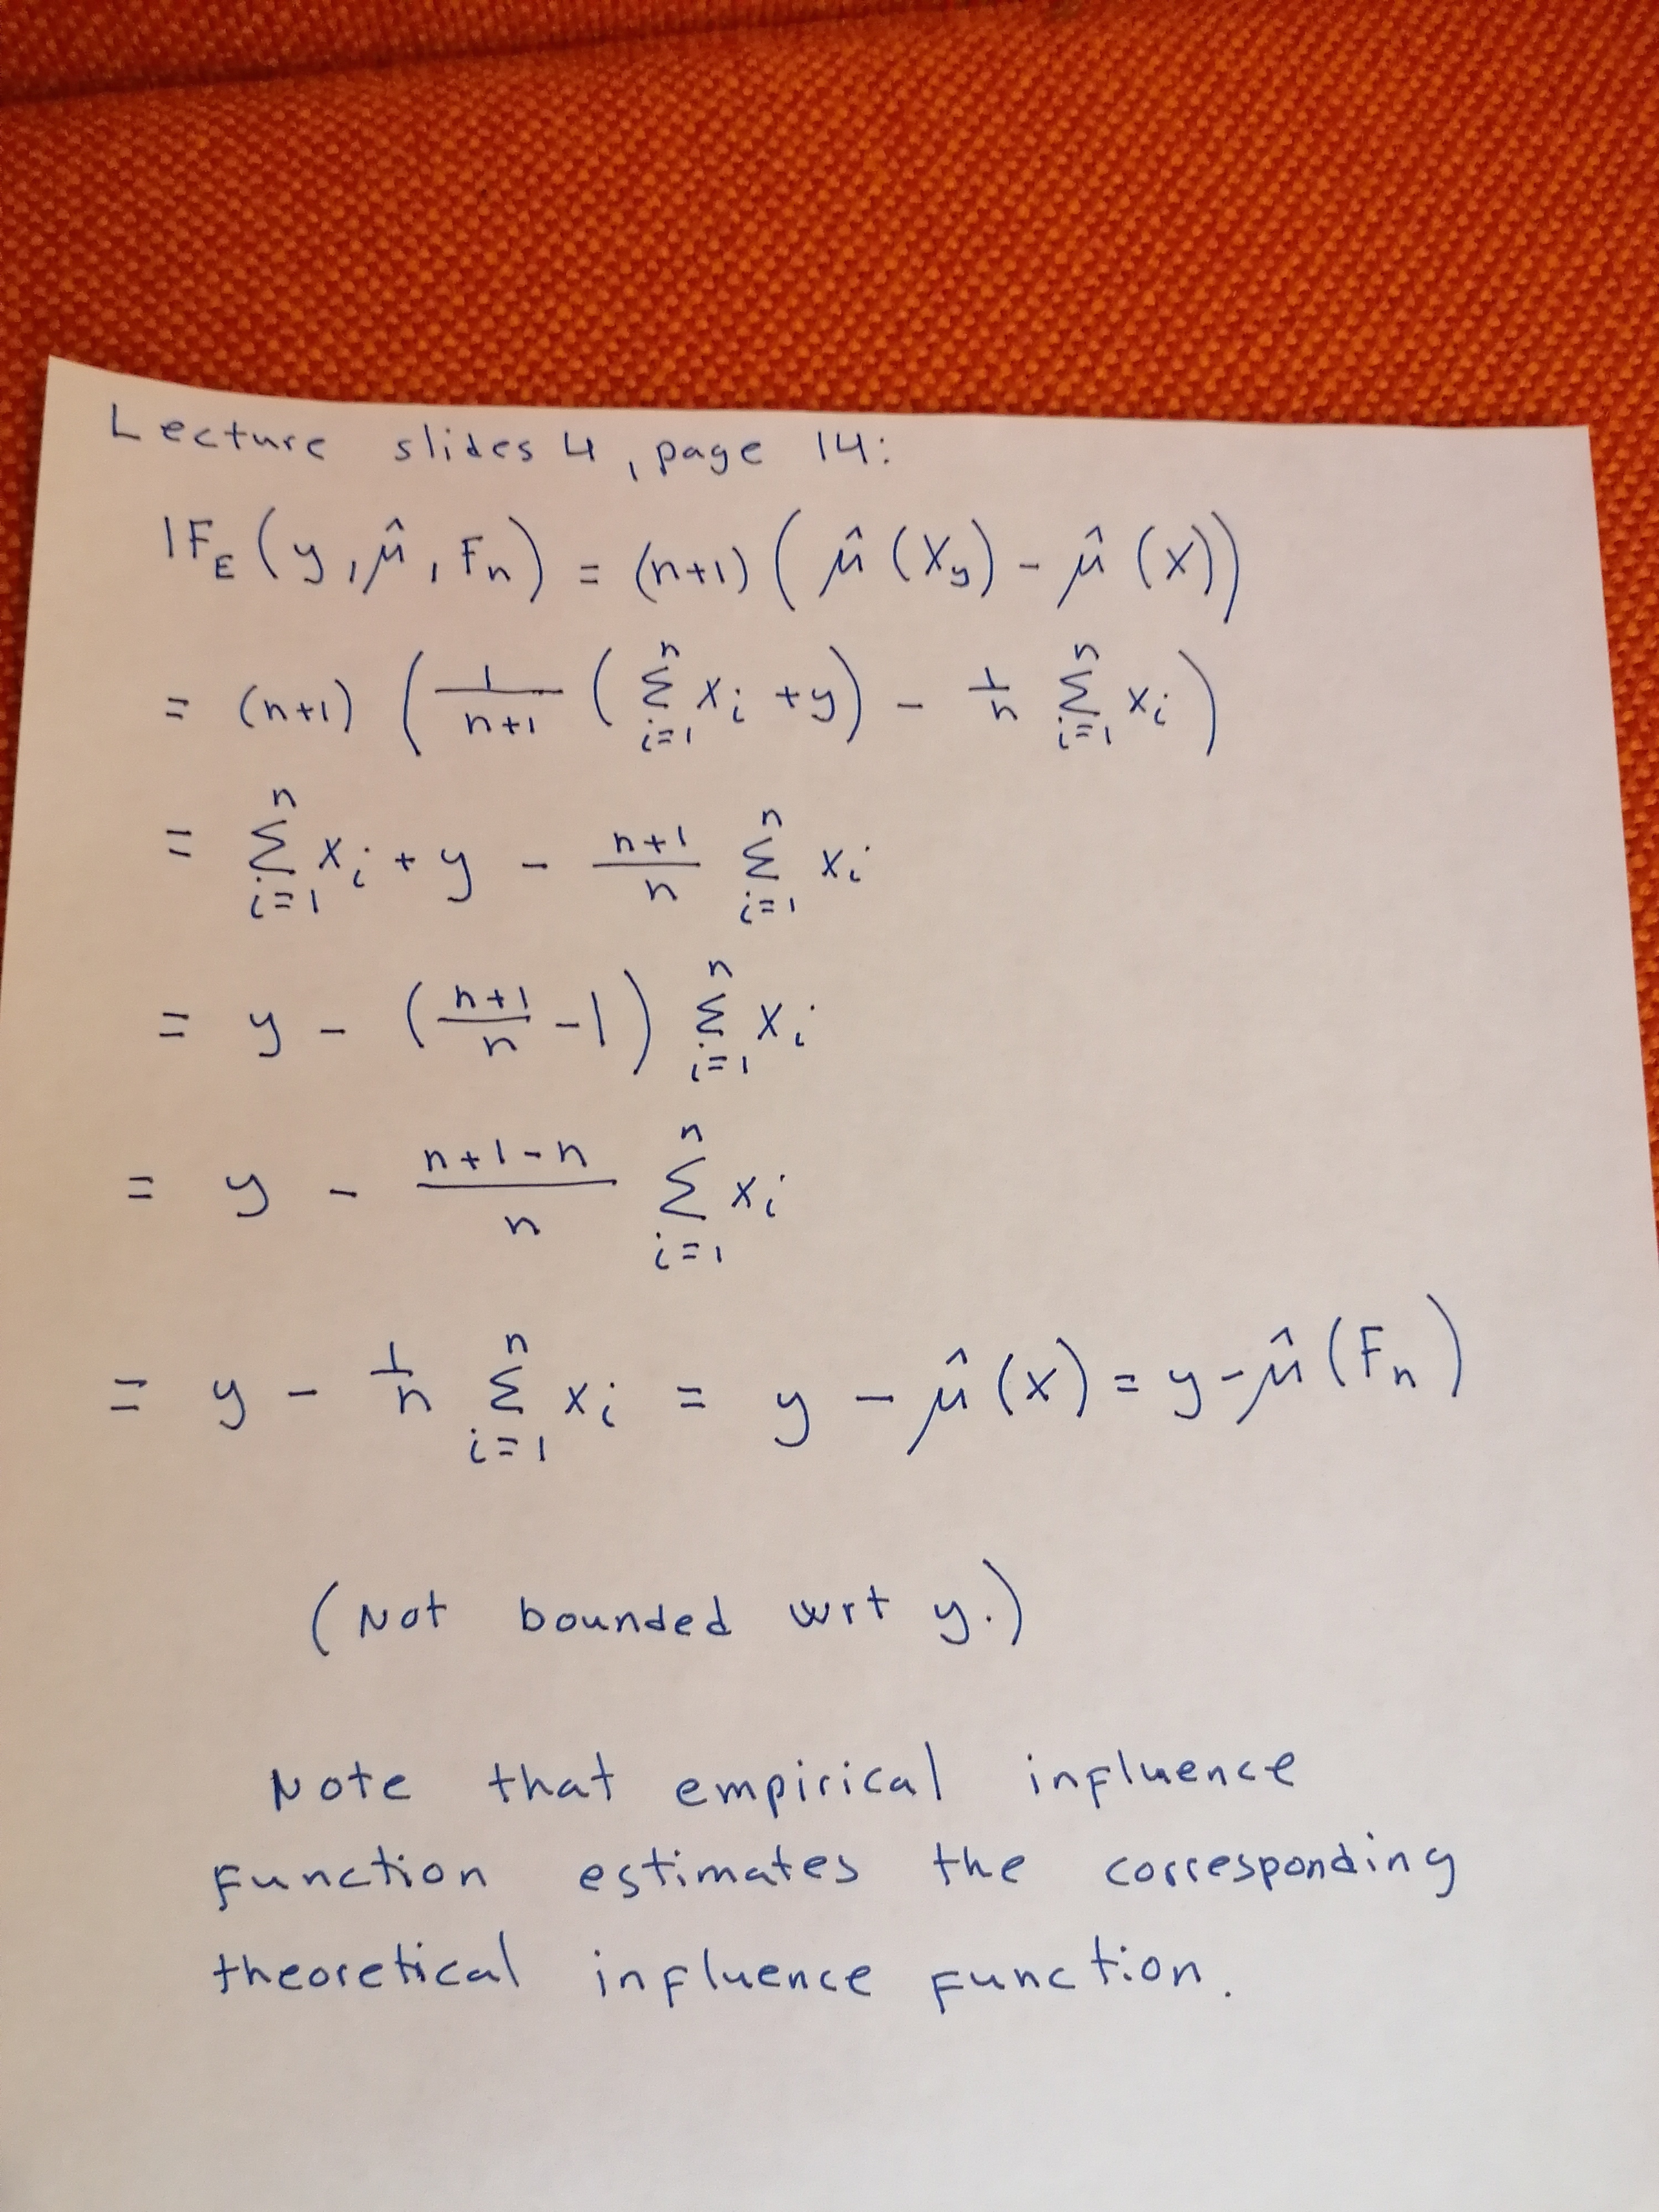 Lecture slides 4, page 14:
IF_E (y, μ̂, F_n) = (n+1) ( μ̂ (X_y) - μ̂ (X))
= (n+1) ( \frac{1}{n+1} ( \sum_{i=1}^{n} x_i + y) - \frac{1}{n} \sum_{i=1}^{n} x_i )
= \sum_{i=1}^{n} x_i + y - \frac{n+1}{n} \sum_{i=1}^{n} x_i
= y - ( \frac{n+1}{n} - 1) \sum_{i=1}^{n} x_i
= y - \frac{n+1-n}{n} \sum_{i=1}^{n} x_i
= y - \frac{1}{n} \sum_{i=1}^{n} x_i = y - μ̂ (X) = y - μ̂ (F_n)
(Not bounded wrt y.)
Note that empirical influence
function estimates the corresponding
theoretical influence function.